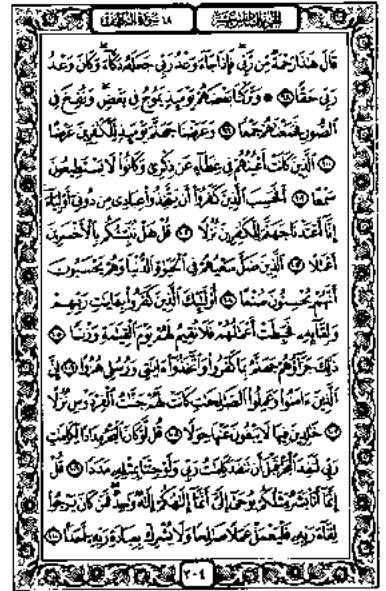 الجزء السادس عشر
١٨ سورة الكهف
قَالَ هَٰذَا رَحْمَةٌ مِّن رَّبِّي فَإِذَا جَاءَ وَعْدُ رَبِّي جَعَلَهُ دَكَّاءَ وَكَانَ وَعْدُ
رَبِّي حَقًّا ٩٨ ۞ وَتَرَكْنَا بَعْضَهُمْ يَوْمَئِذٍ يَمُوجُ فِي بَعْضٍ وَنُفِخَ فِي
ٱلصُّورِ فَجَمَعْنَٰهُمْ جَمْعًا ٩٩ وَعَرَضْنَا جَهَنَّمَ يَوْمَئِذٍ لِّلْكَٰفِرِينَ عَرْضًا
١٠٠ ٱلَّذِينَ كَانَتْ أَعْيُنُهُمْ فِي غِطَاءٍ عَن ذِكْرِي وَكَانُوا۟ لَا يَسْتَطِيعُونَ
سَمْعًا ١٠١ أَفَحَسِبَ ٱلَّذِينَ كَفَرُوٓا۟ أَن يَتَّخِذُوا۟ عِبَادِي مِن دُونِيٓ أَوْلِيَآءَ
إِنَّآ أَعْتَدْنَا جَهَنَّمَ لِلْكَٰفِرِينَ نُزُلًا ١٠٢ قُلْ هَلْ نُنَبِّئُكُم بِٱلْأَخْسَرِينَ
أَعْمَٰلًا ١٠٣ ٱلَّذِينَ ضَلَّ سَعْيُهُمْ فِي ٱلْحَيَوٰةِ ٱلدُّنْيَا وَهُمْ يَحْسَبُونَ
أَنَّهُمْ يُحْسِنُونَ صُنْعًا ١٠٤ أُو۟لَٰٓئِكَ ٱلَّذِينَ كَفَرُوا۟ بِـَٔايَٰتِ رَبِّهِمْ
وَلِقَآئِهِۦ فَحَبِطَتْ أَعْمَٰلُهُمْ فَلَا نُقِيمُ لَهُمْ يَوْمَ ٱلْقِيَٰمَةِ وَزْنًا ١٠٥
ذَٰلِكَ جَزَآؤُهُمْ جَهَنَّمُ بِمَا كَفَرُوا۟ وَٱتَّخَذُوٓا۟ ءَايَٰتِي وَرُسُلِي هُزُوًا ١٠٦ إِنَّ
ٱلَّذِينَ ءَامَنُوا۟ وَعَمِلُوا۟ ٱلصَّٰلِحَٰتِ كَانَتْ لَهُمْ جَنَّٰتُ ٱلْفِرْدَوْسِ نُزُلًا
١٠٧ خَٰلِدِينَ فِيهَا لَا يَبْغُونَ عَنْهَا حِوَلًا ١٠٨ قُل لَّوْ كَانَ ٱلْبَحْرُ مِدَادًا لِّكَلِمَٰتِ
رَبِّي لَنَفِدَ ٱلْبَحْرُ قَبْلَ أَن تَنفَدَ كَلِمَٰتُ رَبِّي وَلَوْ جِئْنَا بِمِثْلِهِۦ مَدَدًا ١٠٩ قُلْ
إِنَّمَآ أَنَا۠ بَشَرٌ مِّثْلُكُمْ يُوحَىٰٓ إِلَيَّ أَنَّمَآ إِلَٰهُكُمْ إِلَٰهٌ وَٰحِدٌ فَمَن كَانَ يَرْجُوا۟
لِقَآءَ رَبِّهِۦ فَلْيَعْمَلْ عَمَلًا صَٰلِحًا وَلَا يُشْرِكْ بِعِبَادَةِ رَبِّهِۦٓ أَحَدًۢا ١١٠
٣٠٤